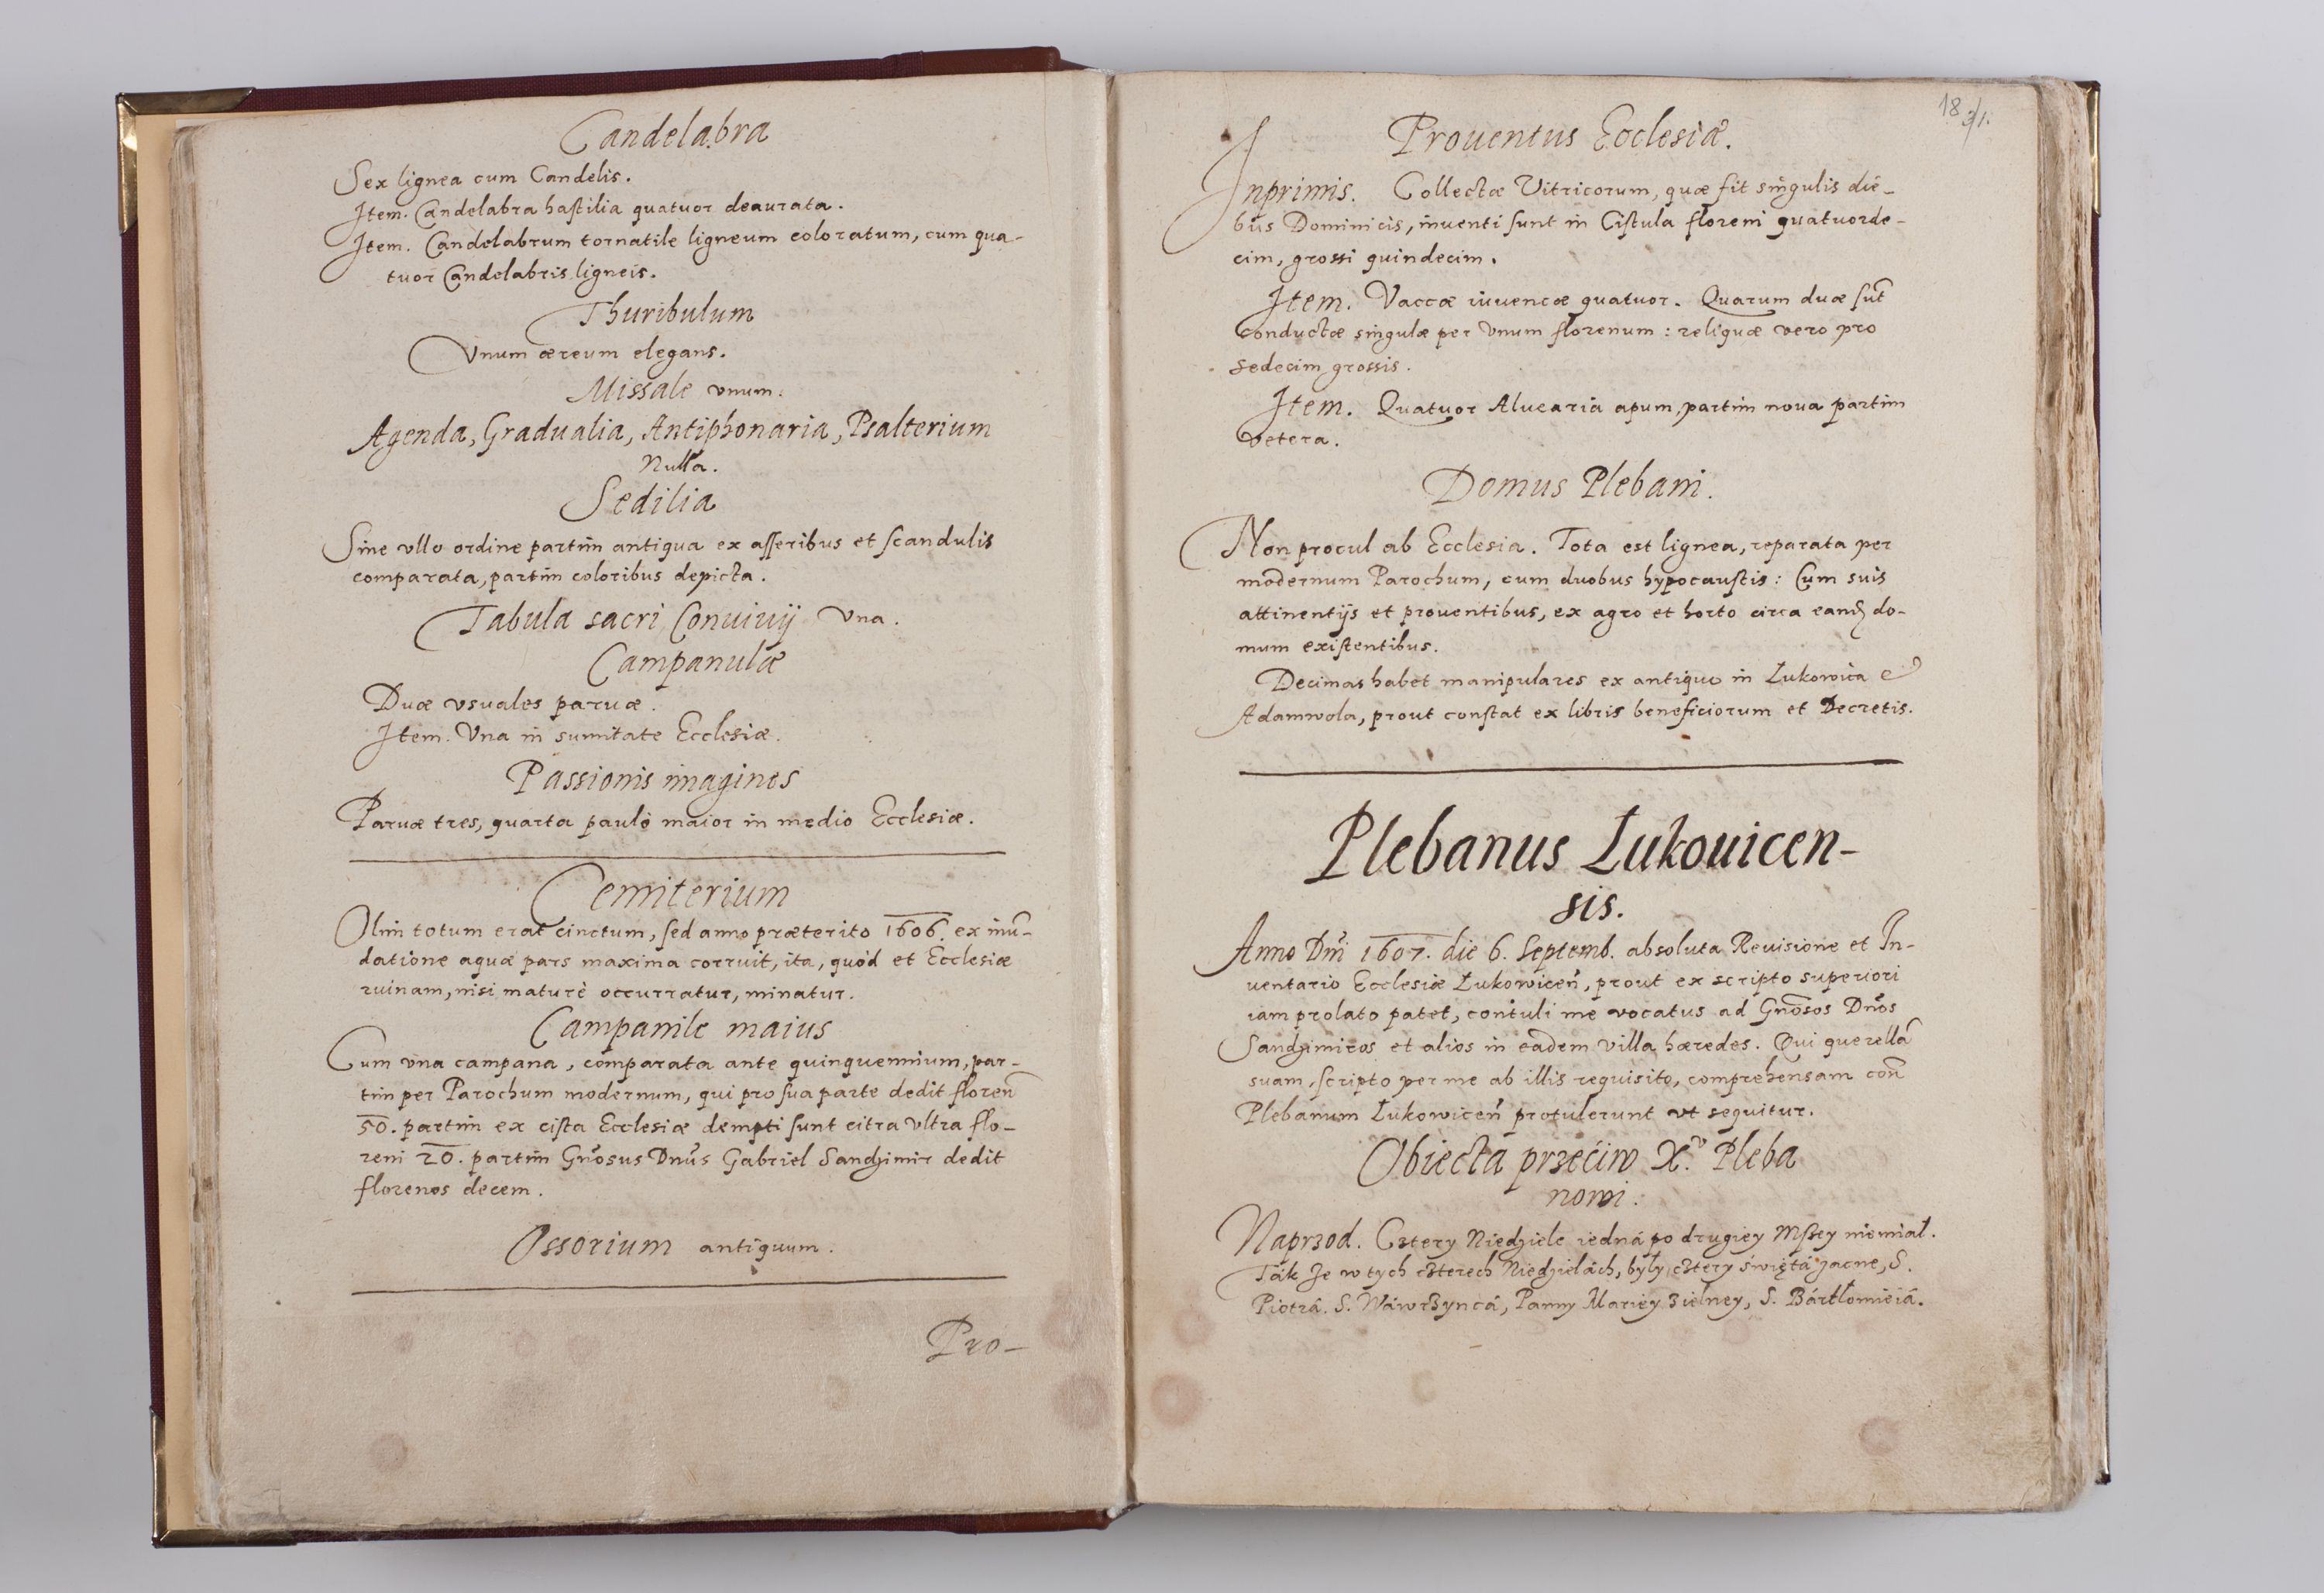 Candelabra
Sex lignea cum Candelis.
Item. Candelabra hastilia quatuor deaurata.
Item. Candelabrum tornatile ligneum coloratum, cum qua-
tuor Candelabris ligneis.
Thuribulum
Vnum æreum elegans.
Missale vnum.
Agenda, Gradualia, Antiphonaria, Psalterium
Nulla.
Sedilia
Sine vllo ordine partim antiqua ex asseribus et scandulis
comparata, partim coloribus depicta.
Tabula sacri Conuiuij Vna.
Campanulæ
Duæ vsuales paruæ.
Item. Vna in sumitate Ecclesiæ.
Passionis imagines
Paruæ tres, quarta paulò maior in medio Ecclesiæ.
Cemiterium
Olim totum erat cinctum, sed anno præterito 1606. ex inũ-
datione aquæ pars maxima corruit, ita, quòd et Ecclesiæ
ruinam, nisi maturè occurratur, minatur.
Campanile maius
Cum vna campana, comparata ante quinquennium, par-
tim per Parochum modernum, qui pro sua parte dedit floreñ
50. partim ex cista Ecclesiæ dempti sunt citra vltra flo-
reni 20. partim Gnõsus Dnũs Gabriel Sandzimir dedit
florenos decem.
Ossorium antiquum.
Pro-
18 31.
Prouentus Ecclesiæ.
Inprimis. Collectæ Vitricorum, quæ fit singulis die-
bus Dominicis, inuenti sunt in Cistula floreni quatuorde-
cim, grossi quindecim.
Item. Vaccæ iuuencæ quatuor. Quarum duæ sũt
conductæ singulæ per Vnum florenum: reliquæ vero pro
sedecim grossis.
Item. Quatuor Aluearia apum, partim noua partim
vetera.
Domus Plebani.
Non procul ab Ecclesia. Tota est lignea, reparata per
modernum Parochum, cum duobus hypocaustis: Cum suis
attinentijs et prouentibus, ex agro et horto circa eandẽ do-
mum existentibus.
Decimas habet manipulares ex antiquo in Łukowica et
Adamwola, prout constat ex libris beneficiorum et Decretis.
Plebanus Łukouicen-
sis.
Anno Dñi 1607. die 6. Septemb. absoluta Reuisione et In-
uentario Ecclesiæ Łukowiceñ, prout ex scripto superiori
iam prolato patet, contuli me vocatus ad Gnõsos Dnõs
Sandzimiros et alios in eadem villa hæredes. Qui querellã
suam, scripto per me ab illis requisito, comprehensam coñ
Plebanum Łukowiceñ protulerunt vt sequitur.
Obiecta przećiw X.º Pleba
nowi.
Naprzod. Cztery Niedziele iedná po drugiey Mszey niemiał.
Ták że w tych czterech Niedzielách, były cztery święta zacne, S.
Piotrá. S. Wáwrzyncá, Panny Mariey Zielney, S. Bártłomieiá.